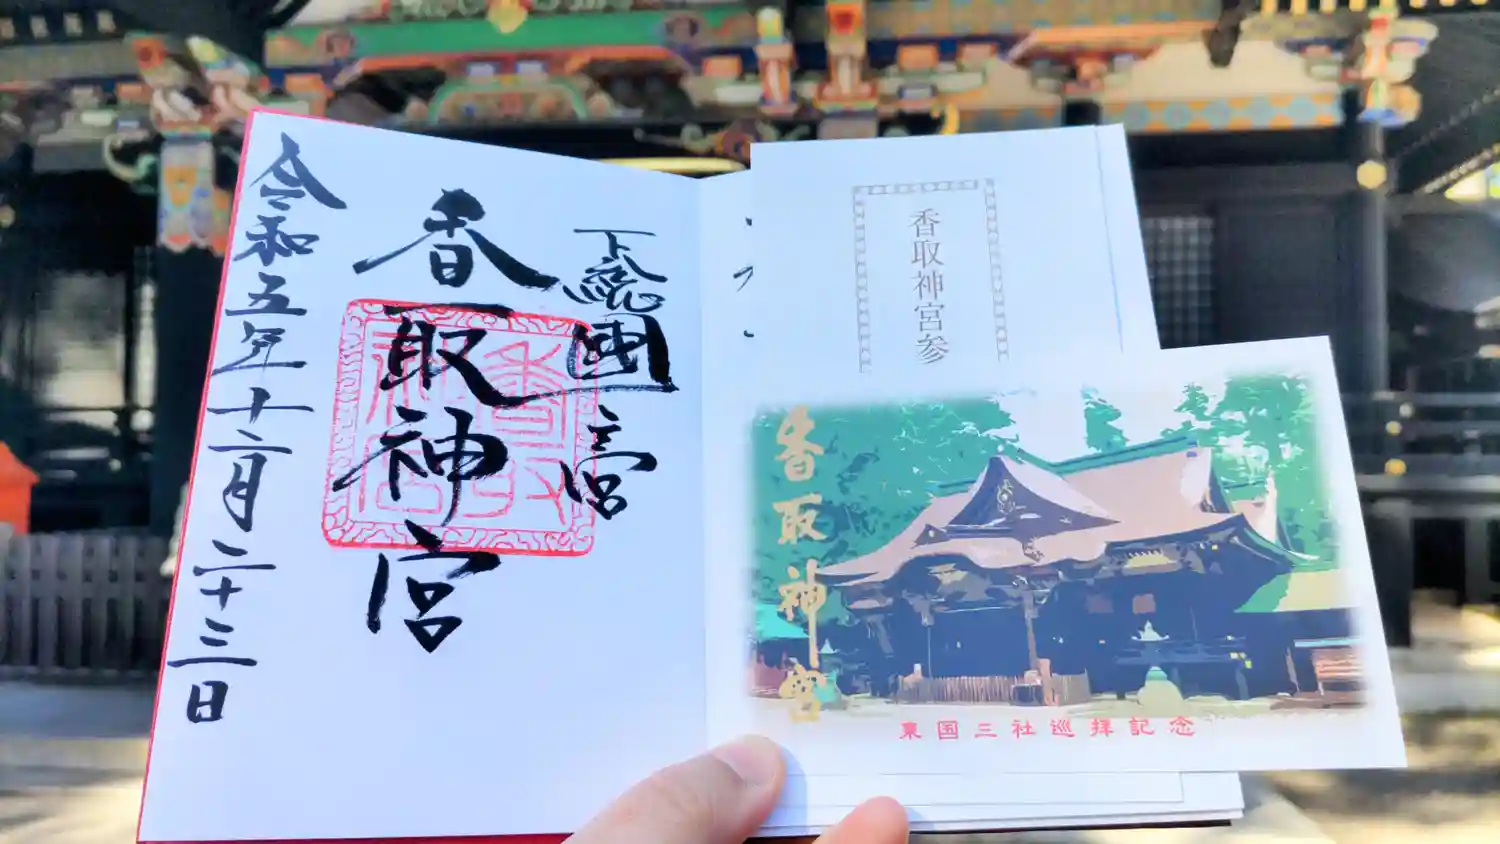 下総国一宮
香取神宮
令和五年十二月二十三日
香取神宮参
香取神宮
東国三社巡拝記念